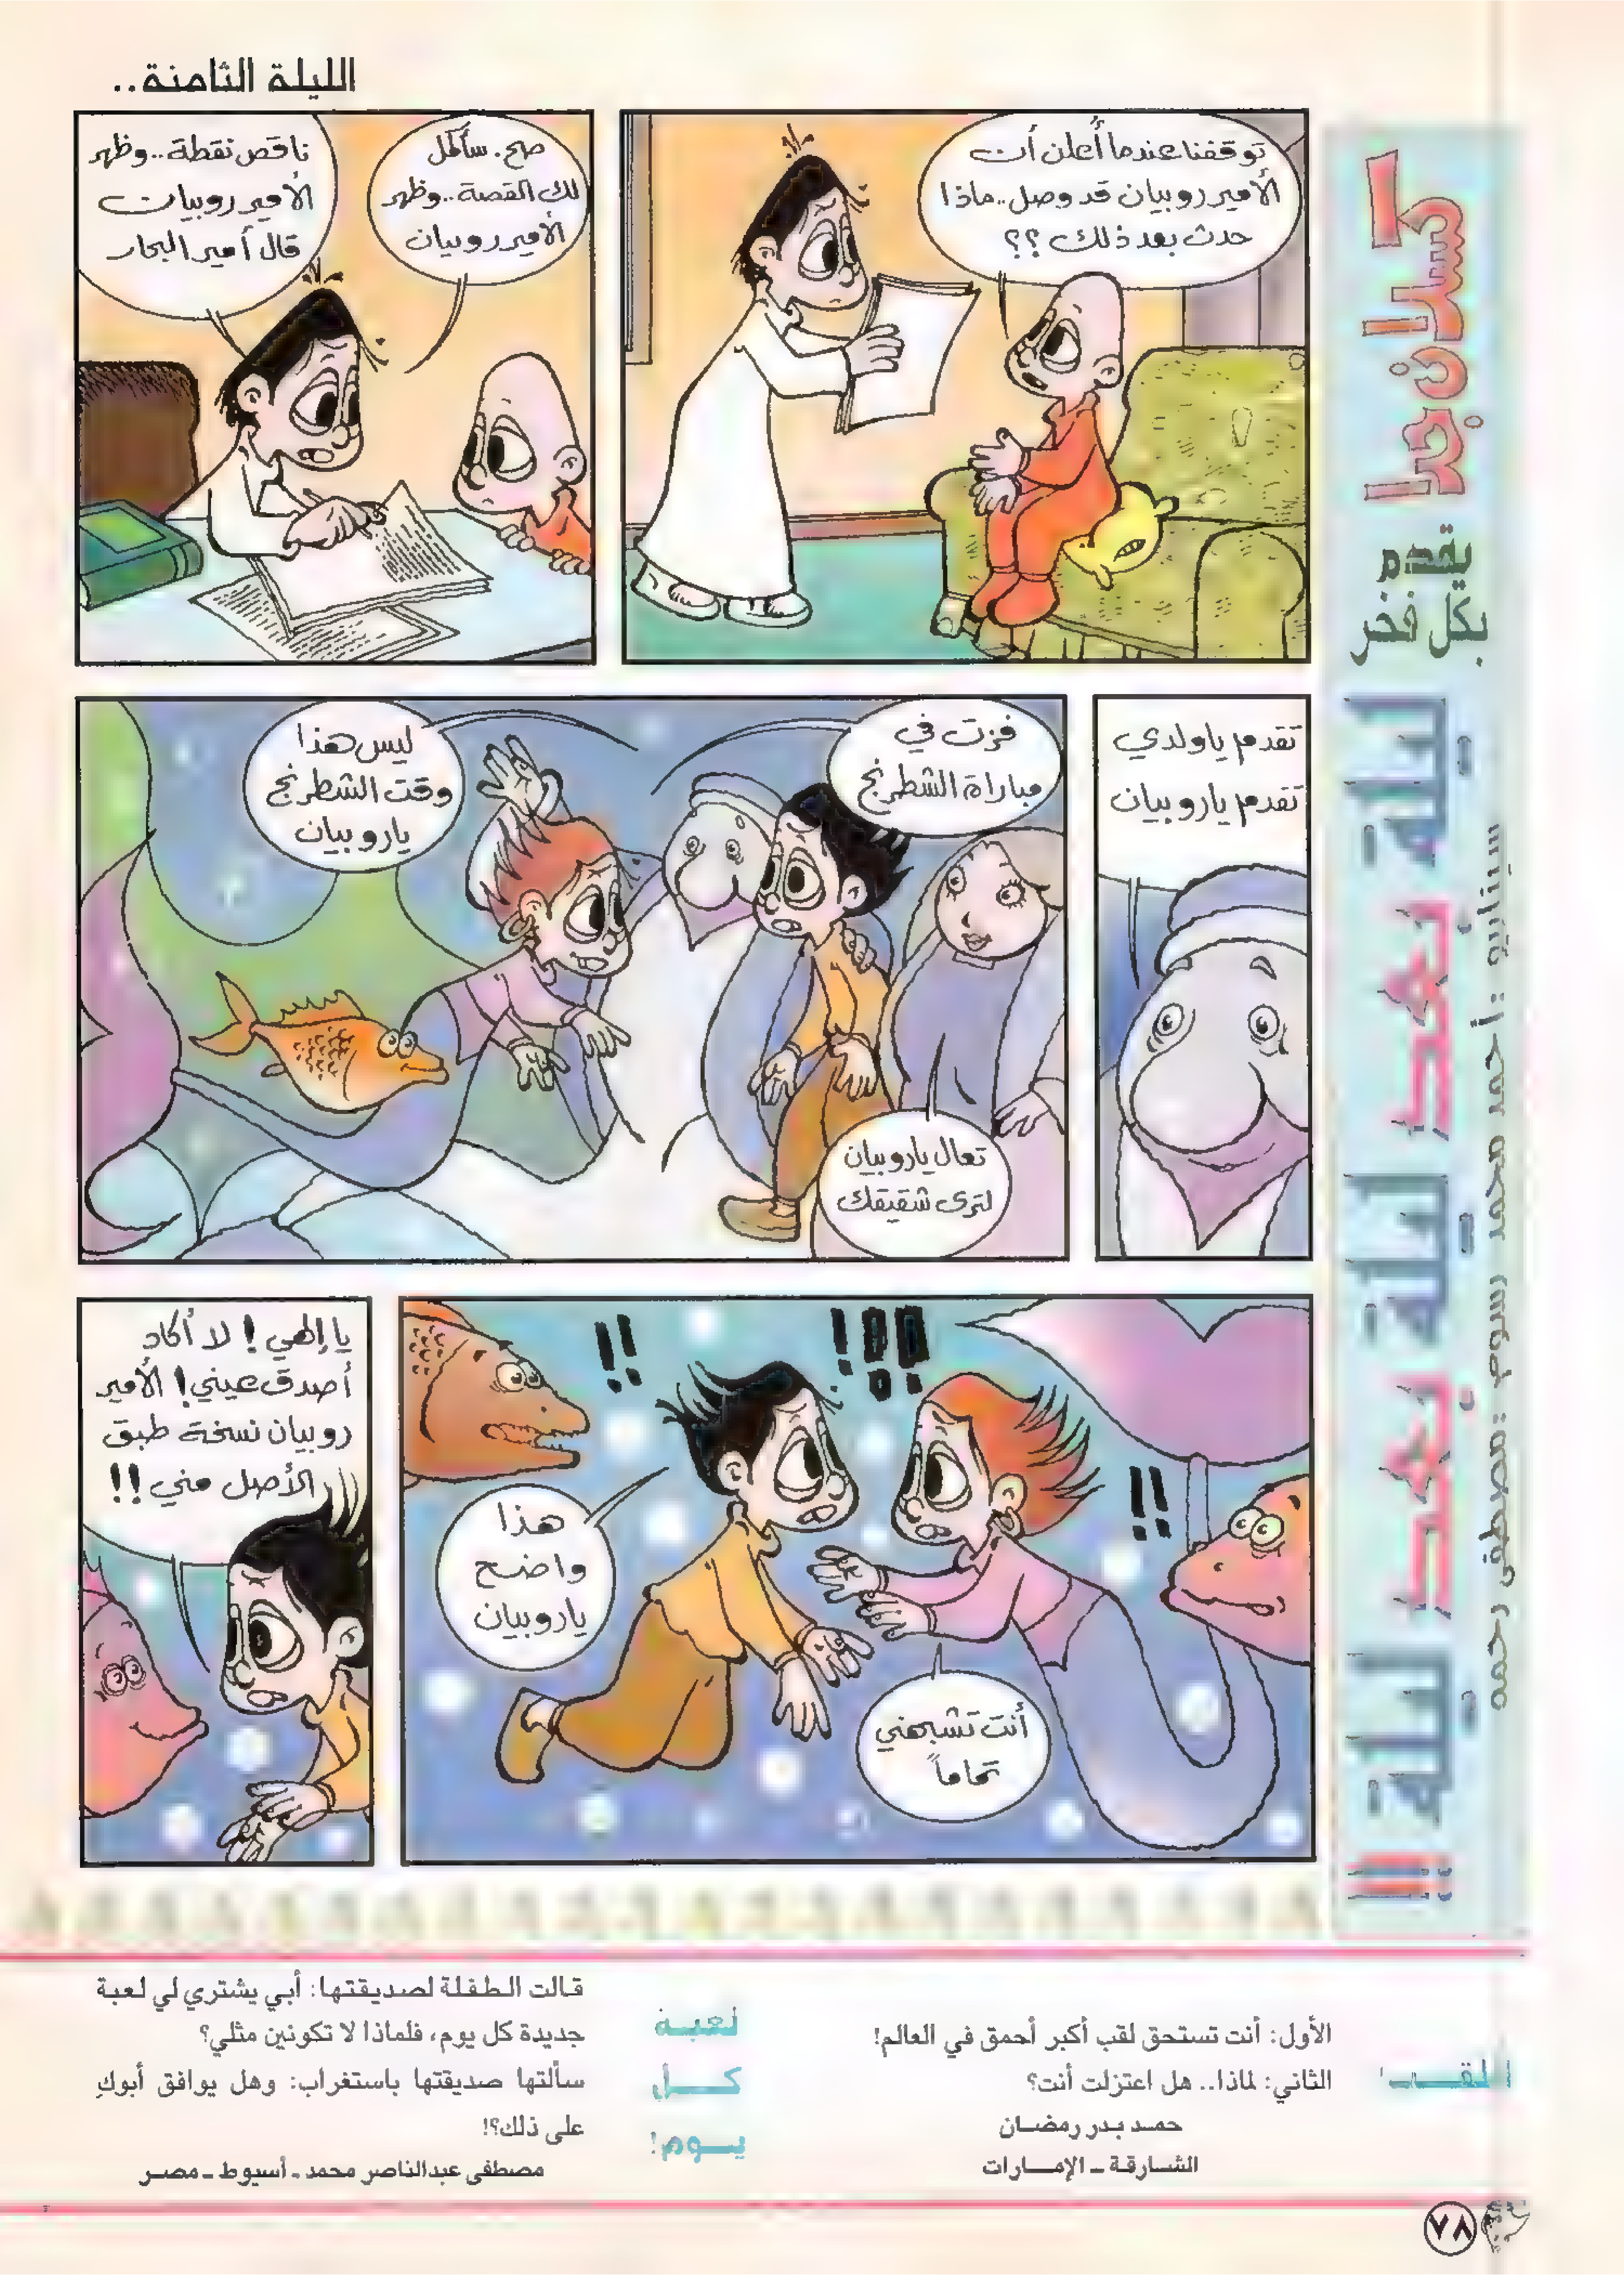 الليلة الثامنة..
كسلان جدا
يقدم
بكل فخر
ليلة بعد ليلة بعد ليلة !!!
سيناريو: أحمد محمد رسوم: مصطفى رحمه
توقفنا عندما أُعلن أن
الأمير روبيان قد وصل.. ماذا
حدث بعد ذلك ؟؟
صح. سأكمل
لك القصة.. وظهر
الأمير روبيان
ناقص نقطة.. وظهر
الأمير روبيان
قال أمير البحار
تقدم يا ولدي
تقدم يا روبيان
فزت في
مباراة الشطرنج
ليس هذا
وقت الشطرنج
يا روبيان
تعال يا روبيان
لترى شقيقك
!!
!!!
!!
أنت تشبهني
تماماً
هذا
واضح
يا روبيان
يا إلهي ! لا أكاد
أصدق عيني ! الأمير
روبيان نسخة طبق
الأصل مني !!
اللقب
الأول: أنت تستحق لقب أكبر أحمق في العالم!
الثاني: لماذا.. هل اعتزلت أنت؟
حمد بدر رمضان
الشارقة ـ الإمارات
لعبة
كل
يوم!
قالت الطفلة لصديقتها: أبي يشتري لي لعبة
جديدة كل يوم، فلماذا لا تكونين مثلي؟
سألتها صديقتها باستغراب: وهل يوافق أبوكِ
على ذلك؟!
مصطفى عبدالناصر محمد ـ أسيوط ـ مصر
٧٨